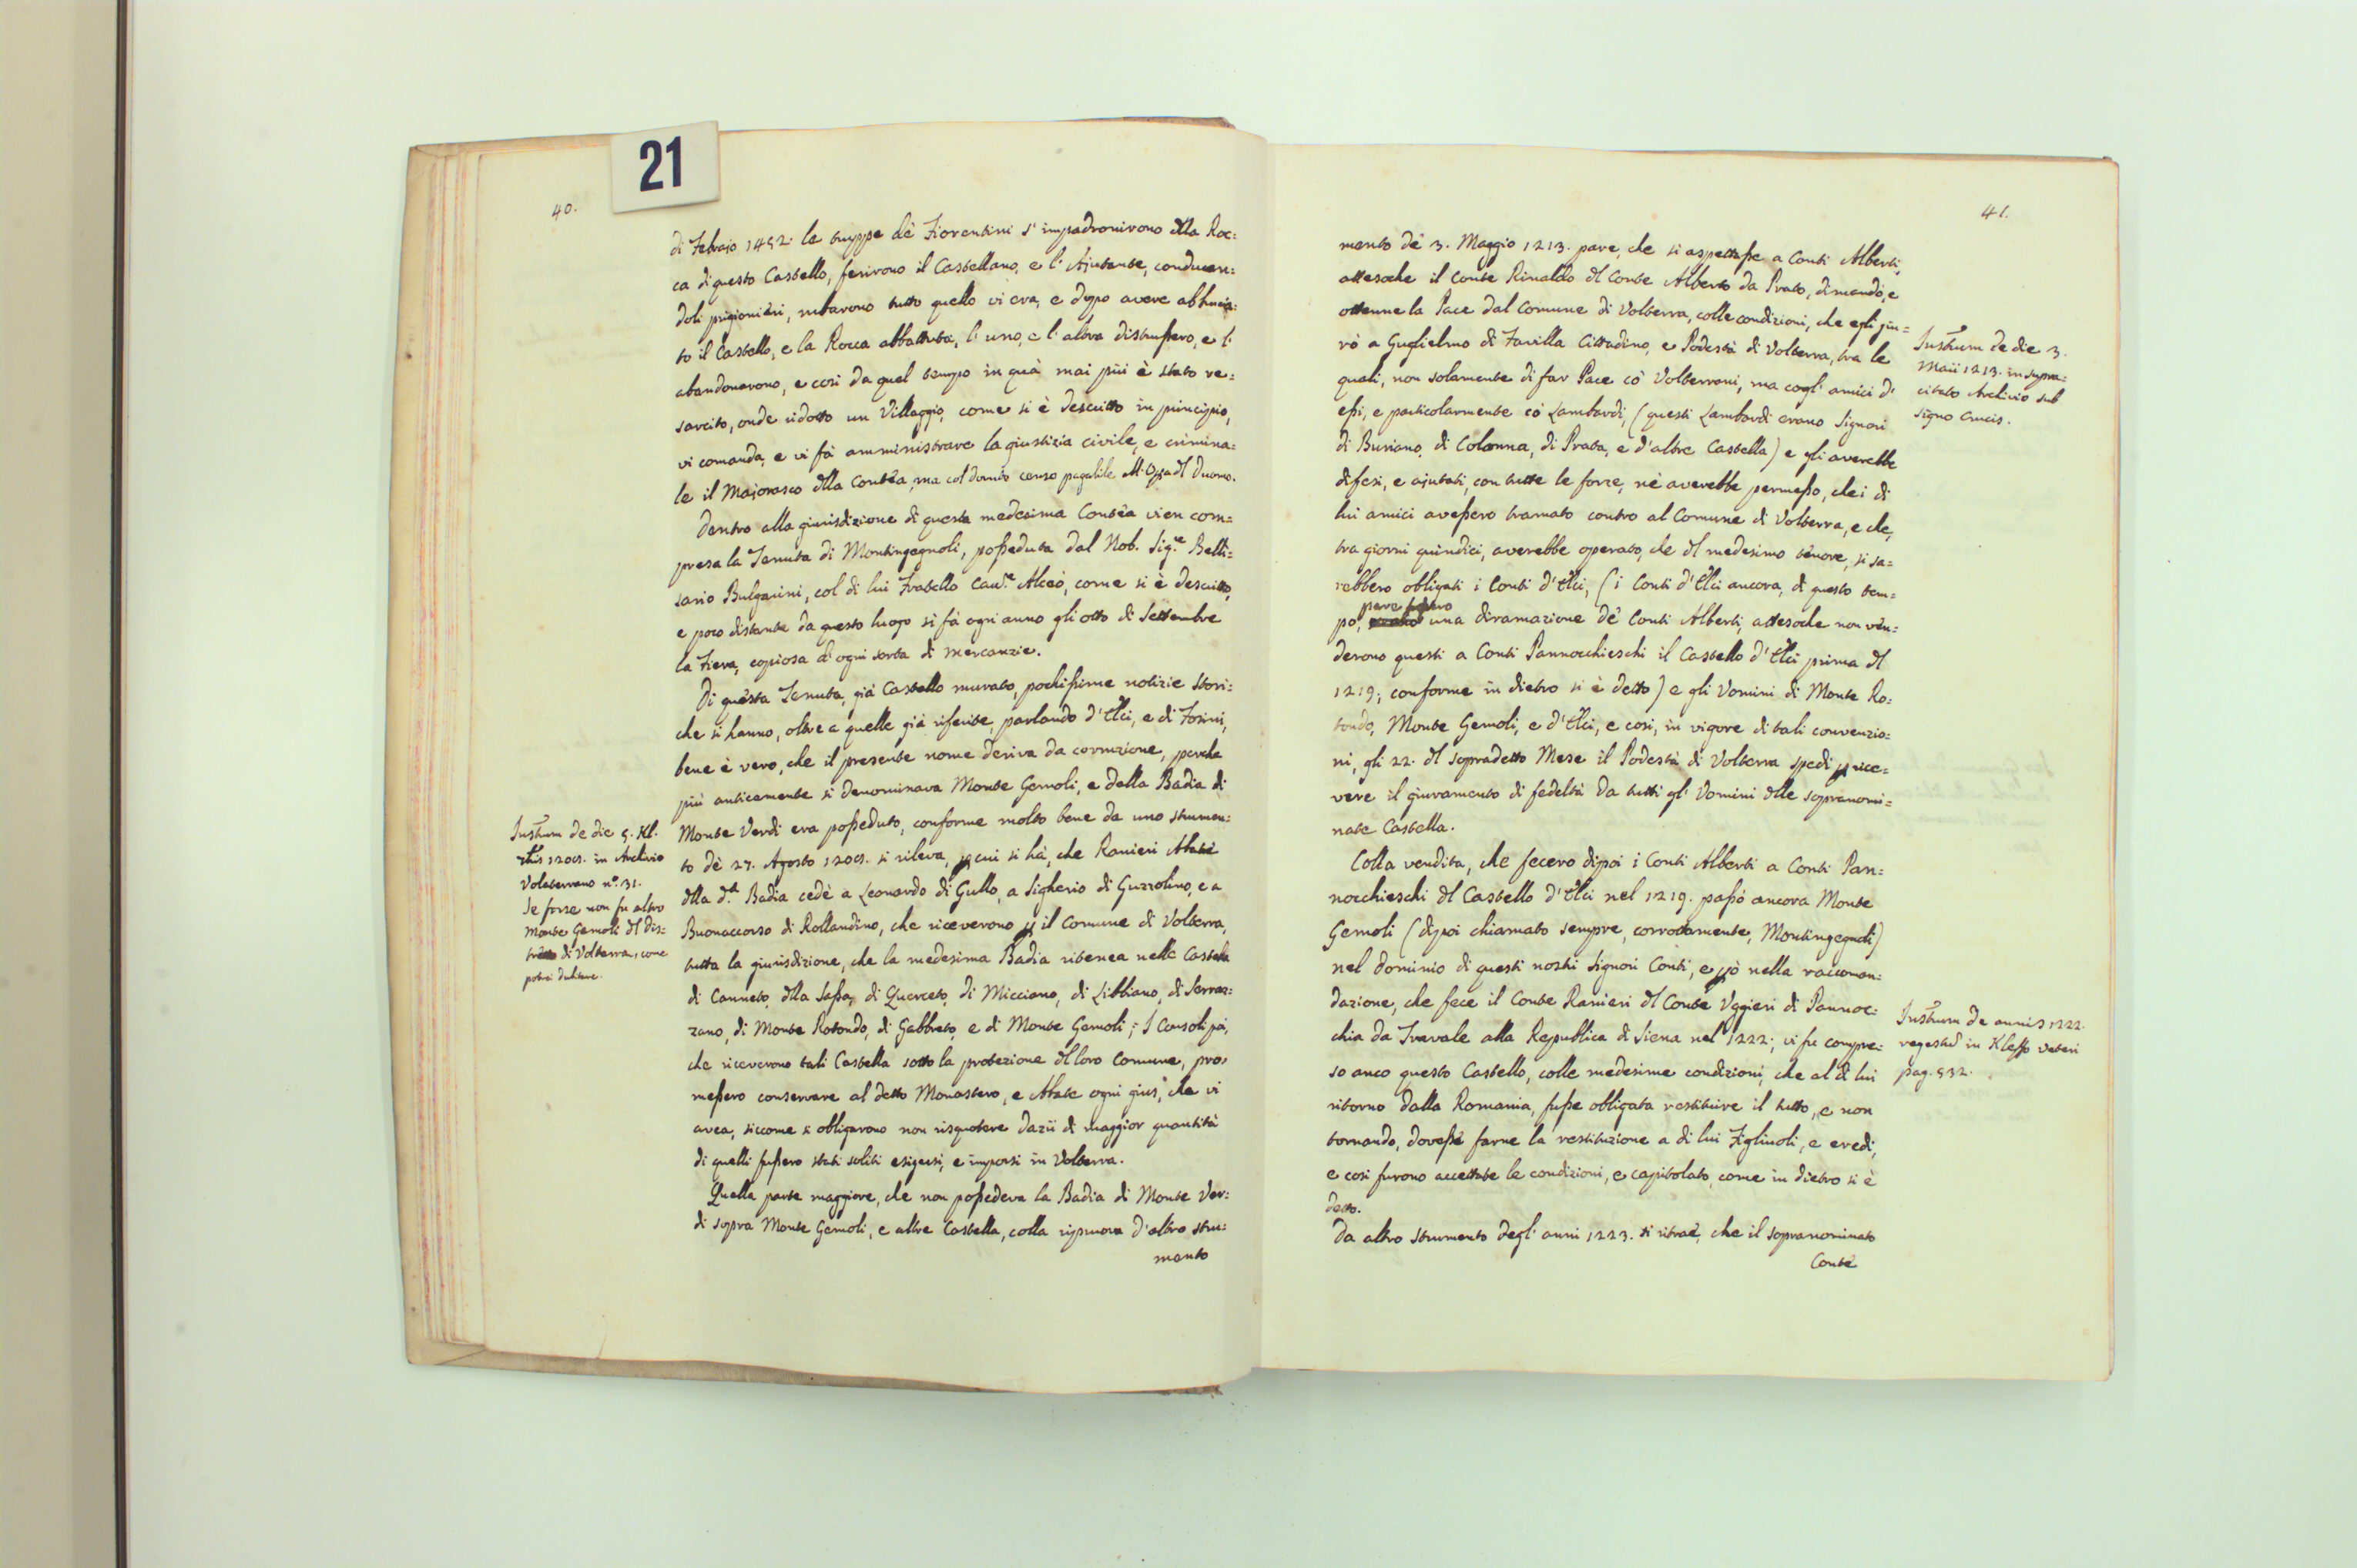 21
40.
di Febraio 1452. le truppe de' Fiorentini s'impadronirono dlla Roc=
ca di questo Castello, ferirono il Castellano, e l'Ajutante, conducen=
doli prigionieri, rubarono tutto quello vi era, e doppo avere abbrucia=
to il Castello, e la Rocca abbattuta, l'uno, e l'altra distrussero, e l'
abandonarono, e così da quel tempo in quà mai più è stato re=
sarcito, onde ridotto un Villaggio, come si è descritto in principio,
vi comanda, e vi fà amministrare la giustizia civile, e crimina=
le il Majorasco dlla Contèa, ma col dovuto censo pagabile all'Opa dl Duomo.
Dentro alla giurisdizione di questa medesima Contèa vien com=
presa la Tenuta di Montingegnoli, posseduta dal Nob. Sig.re Belli=
sario Bulgarini, col di lui Fratello Cav.re Alceo, come si è descritto,
e poco distante da questo luogo si fà ogni anno gli otto di Settembre
la Fiera, copiosa d'ogni sorta di mercanzie.
Di questa Tenuta, già Castello murato, pochissime notizie stori=
che si hanno, oltre a quelle già riferite, parlando d'Elci, e di Fosini,
bene è vero, che il presente nome deriva da corruzione, perche
più anticamente si denominava Monte Gemoli, e dalla Badia di
Monte Verdi era posseduto, conforme molto bene da uno strumen=
to de' 27. Agosto 1208. si rileva, p cui si hà, che Ranieri Abate
dlla d.a Badia cedè a Leonardo di Gullo, a Sigherio di Guzzolino, e a
Buonaccorso di Rollandino, che riceverono p il Comune di Volterra,
tutta la giurisdizione, che la medesima Badia ritenea nelle Castella
di Canneto, dlla Sassa, di Querceto, di Micciano, di Libbiano, di Serraz=
zano, di Monte Rotondo, di Gabbreto, e di Monte Gemoli; I Consoli poi,
che riceverono tali Castella sotto la protezione dl loro Comune, pro=
messero conservare al detto Monastero, e Abate ogni gius, che vi
avea, siccome si obligarono non risquotere dazii di maggior quantità
di quelli fussero stati soliti esigersi, e imporsi in Volterra.
Quella parte maggiore, che non possedeva la Badia di Monte Ver=
di sopra Monte Gemoli, e altre Castella, colla ripruova d'altro stru=
mento
Instrum de die 5. Kl.
in Archivio
Volaterrano n.° 31.
Se forse non fu altro
Monte Gemoli dl dis=
tretto di Volterra, come
41.
mento de' 3. Maggio 1213. pare, che si aspettasse a Conti Alberti,
attesoche il Conte Rinaldo dl Conte Alberto da Prato, dimandò, e
ottenne la Pace dal Comune di Volterra, colle condizioni, che egli giu=
rò a Guglielmo di Favilla Cittadino, e Podestà di Volterra, tra le
quali, non solamente di far Pace co' Volterrani, ma cogl'amici d'
essi, e particolarmente co' Lambardi, (questi Lambardi erano Signori
di Buriano, di Colonna, di Prata, e d'altre Castella) e gli averebbe
difesi, e ajutati, con tutte le forze, nè averebbe permesso, che i di
lui amici avessero tramato contro al Comune di Volterra, e che,
tra giorni quindici, averebbe operato, che dl medesimo tenore, si sa=
rebbero obligati i Conti d'Elci, (i Conti d'Elci ancora, di questo tem=
pare fossero
po, una diramazione de' Conti Alberti, attesoche non ven=
derono questi a Conti Pannocchieschi il Castello d'Elci prima dl
1219; conforme in dietro si è detto) e gli Vomini di Monte Ro=
tondo, Monte Gemoli, e d'Elci, e così, in vigore di tali convenzio=
ni, gli 22. dl sopradetto Mese il Podestà di Volterra spedì p rice=
vere il giuramento di fedeltà da tutti gl'Vomini dlle sopranomi=
nate Castella.
Colla vendita, che fecero dipoi i Conti Alberti a Conti Pan=
nocchieschi dl Castello d'Elci nel 1219. passò ancora Monte
Gemoli (dipoi chiamato sempre, corrottamente, Montingegnoli)
nel dominio di questi nostri Signori Conti, e pò nella raccoman=
dazione, che fece il Conte Ranieri dl Conte Vggieri di Pannoc=
chia da Travale alla Republica di Siena nel 1222; vi fu compre=
so anco questo Castello, colle medesime condizioni, che al di lui
ritorno dalla Romania, fusse obligata restituire il tutto, e non
tornando, dovesse farne la restituzione a di lui Figliuoli, e eredi,
e così furono accettate le condizioni, e capitolato, come in dietro si è
detto.
Da altro strumento degl'anni 1223. si ritrae, che il sopranominato
Conte
Instrum de die 3.
Maii 1213. in supra=
citato Archivio sub
signo Crucis.
Instrum de annis 1222.
regestu in Kleffo veteri
pag. 532.